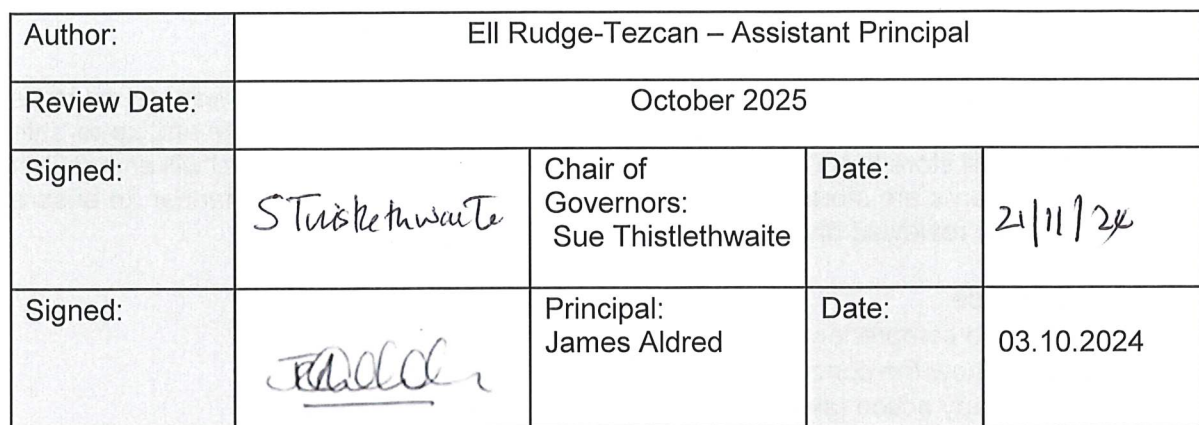 Author: Ell Rudge-Tezcan – Assistant Principal
Review Date: October 2025
Signed: S Thistlethwaite Chair of Governors: Sue Thistlethwaite Date: 21/11/24
Signed: Principal: James Aldred Date: 03.10.2024